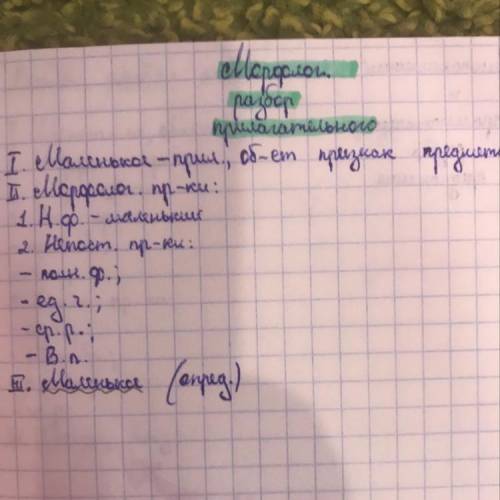 Морфолог.
разбор
прилагательного
I. Маленькое - прил., об-ет признак предмета
II. Морфолог. пр-ки:
1. Н.ф. - маленький
2. Непост. пр-ки:
- полн. ф.;
- ед. ч.;
- ср. р.;
- В.п.
III. Маленькое (опред.)